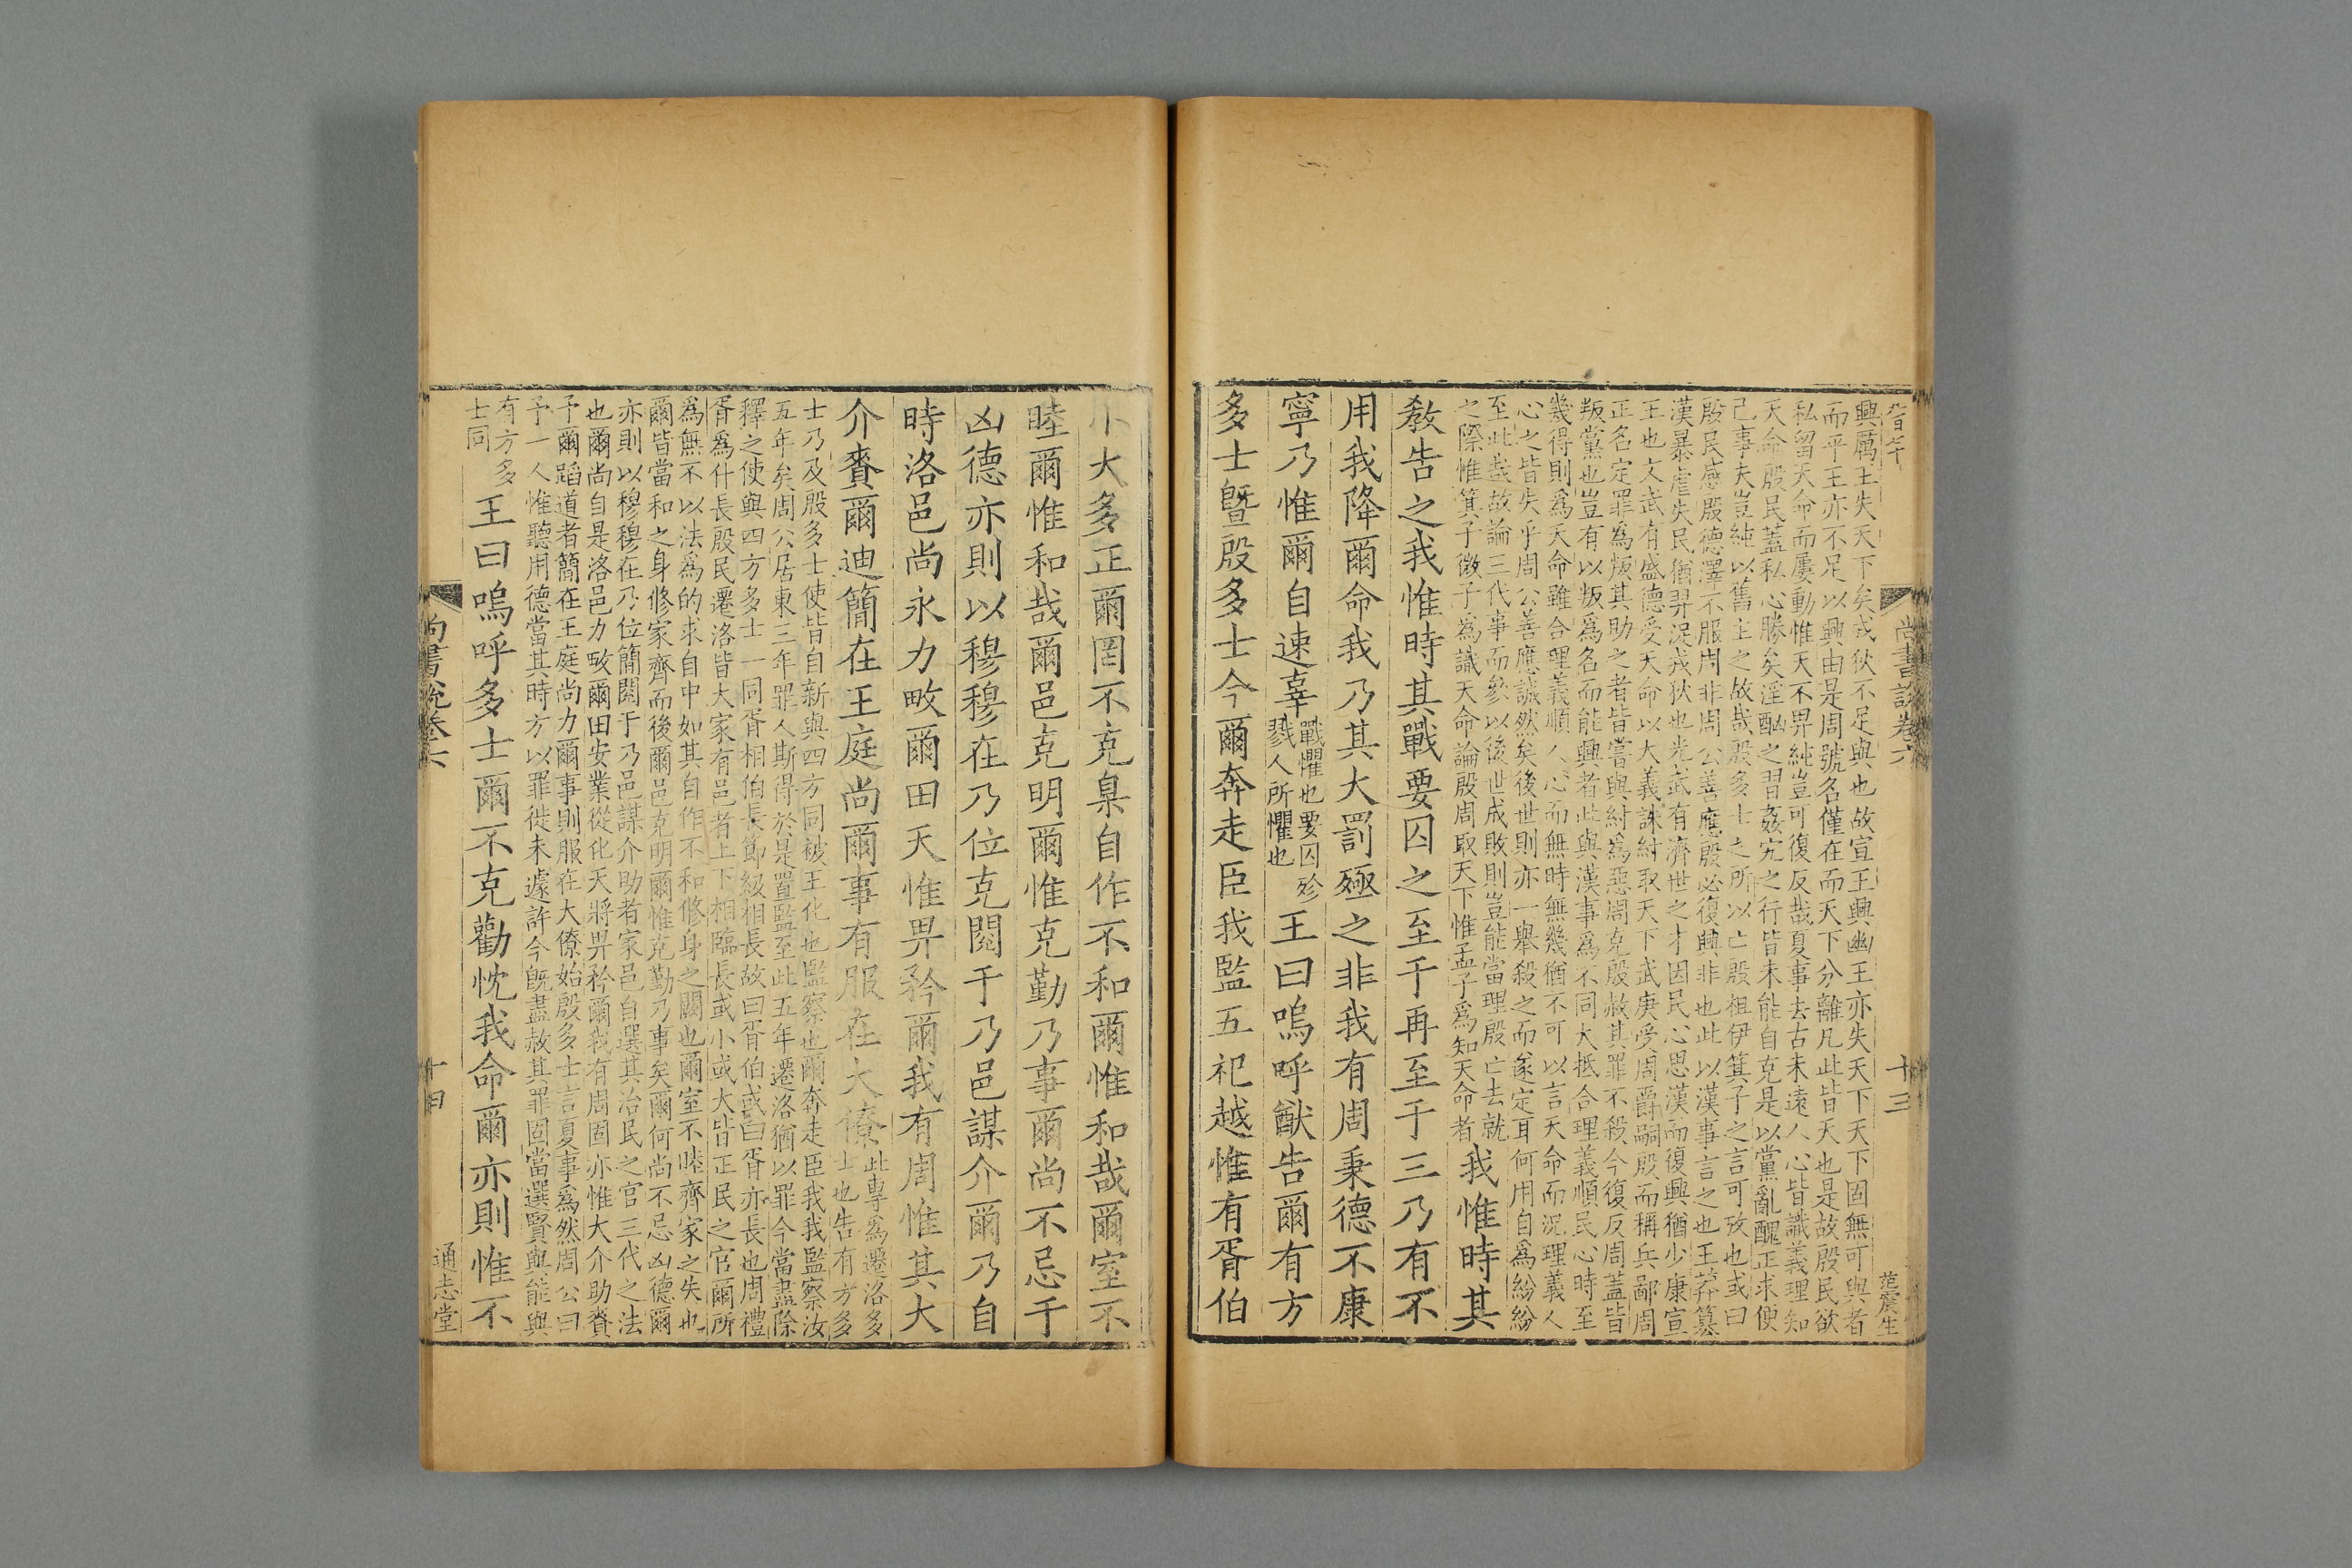 尚書説卷六
十三
范震生
興厲王失天下矣戎狄不足與也故宣王興幽王亦失天下天下固無可與者
而平王亦不足以興由是周號名僅在而天下分離凡此皆天也是故殷民欲
私留天命而屢動惟天不畀純豈可復反哉夏事去古未遠人心皆識義理知
天命殷民蓋私心勝矣淫酗之習姦宄之行皆未能自克是以黨亂醜正求便
己事夫豈純以舊主之故哉殷多士之所以亡殷祖伊箕子之言可攷也或曰
殷民感殷德澤不服周非周公善應殷必復興非也此以漢事言之也王莽篡
漢暴虐失民猶羿浞戎狄也光武有濟世之才因民心思漢而復興猶少康宣
王也文武有盛德受天命以大義誅紂取天下武庚受周爵嗣殷而稱兵鄙周
正名定罪爲叛其助之者皆嘗與紂爲惡周克殷赦其罪不殺今復反周蓋皆
叛黨也豈有以叛爲名而能興者此與漢事爲不同大抵合理義順民心時至
幾得則爲天命雖合理義順人心而無時無幾猶不可以言天命而況理義人
心之皆失乎周公善應誠然矣後世則亦一舉殺之而遂定耳何用自爲紛紛
至此盡故論三代事而參以後世成敗則豈能當理殷亡去就
之際惟箕子微子爲識天命論殷周取天下惟孟子爲知天命者
我惟時其
教告之我惟時其戰要囚之至于再至于三乃有不
用我降爾命我乃其大罰殛之非我有周秉德不康
寧乃惟爾自速辜
戰懼也要囚殄
戮人所懼也
王曰嗚呼猷告爾有方
多士暨殷多士今爾奔走臣我監五祀越惟有胥伯
小大多正爾罔不克臬自作不和爾惟和哉爾室不
睦爾惟和哉爾邑克明爾惟克勤乃事爾尚不忌于
凶德亦則以穆穆在乃位克閱于乃邑謀介爾乃自
時洛邑尚永力畋爾田天惟畀矜爾我有周惟其大
介賚爾迪簡在王庭尚爾事有服在大僚
此專爲遷洛多
士也告有方多
士乃及殷多士使皆自新與四方同被王化也監察也爾奔走臣我我監察汝
五年矣周公居東三年罪人斯得於是置監至此五年遷洛猶以罪今當盡除
釋之使與四方多士一同胥相伯長節級相長故曰胥伯或曰胥亦長也周禮
胥爲什長殷民遷洛皆大家有邑者上下相臨長或小或大皆正民之官爾所
爲無不以法爲的求自中如其自作不和修身之闕也爾室不睦齊家之失也
爾皆當和之身修家齊而後爾邑克明爾惟克勤乃事矣爾何尚不忌凶德爾
亦則以穆穆在乃位簡閱于乃邑謀介助者家邑自選其治民之官三代之法
也爾尚自是洛邑力畋爾田安業從化天將畀矜爾我有周固亦惟大介助賚
予爾蹈道者簡在王庭尚力爾事則服在大僚始殷多士言夏事爲然周公曰
予一人惟聽用德當其時方以罪徙未遽許今既盡赦其罪固當選賢與能與
有方多
士同
王曰嗚呼多士爾不克勸忱我命爾亦則惟不
尚書説卷六
十四
通志堂